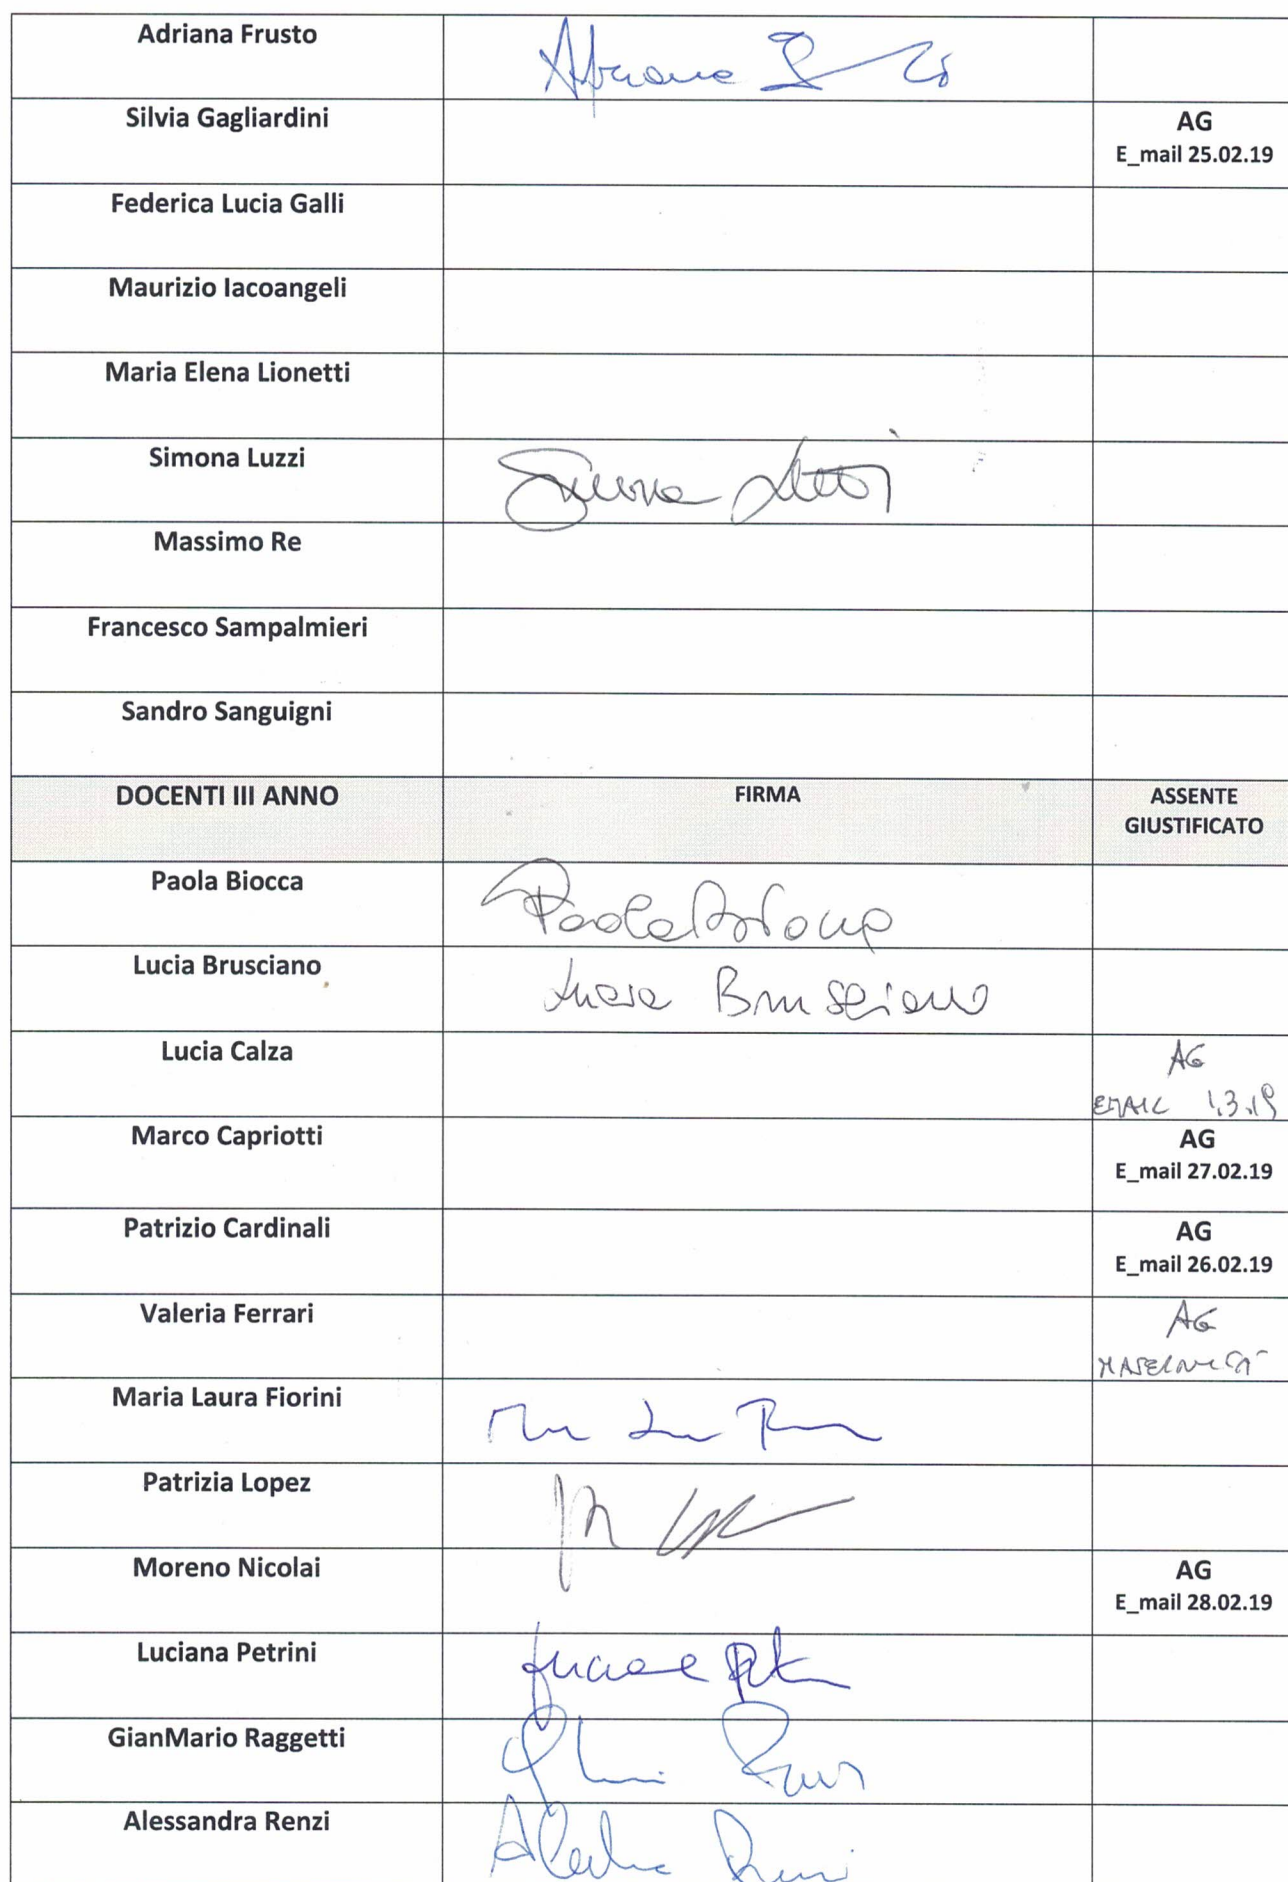 Adriana Frusto
Adriana
Silvia Gagliardini AG
E_mail 25.02.19
Federica Lucia Galli
Maurizio Iacoangeli
Maria Elena Lionetti
Simona Luzzi Simona Luzzi
Massimo Re
Francesco Sampalmieri
Sandro Sanguigni
DOCENTI III ANNO FIRMA ASSENTE
GIUSTIFICATO
Paola Biocca Paola Biocca
Lucia Brusciano Lucia Brusciano
Lucia Calza AG
EMAIL 1.3.19
Marco Capriotti AG
E_mail 27.02.19
Patrizio Cardinali AG
E_mail 26.02.19
Valeria Ferrari AG
MATERNITÀ
Maria Laura Fiorini
Patrizia Lopez
Moreno Nicolai AG
E_mail 28.02.19
Luciana Petrini Luciana
GianMario Raggetti
Alessandra Renzi